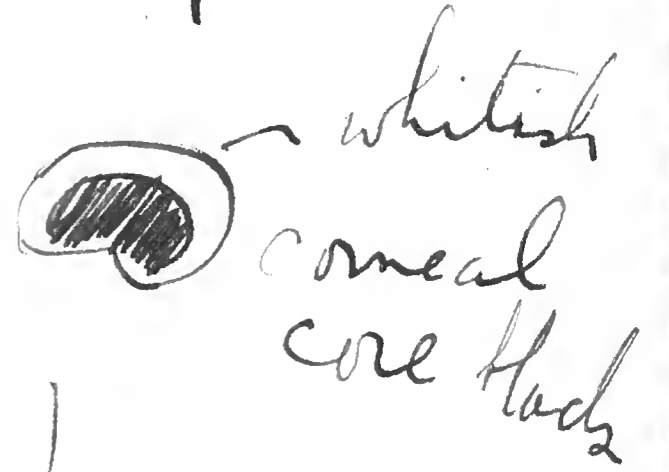 whitish
corneal
core black